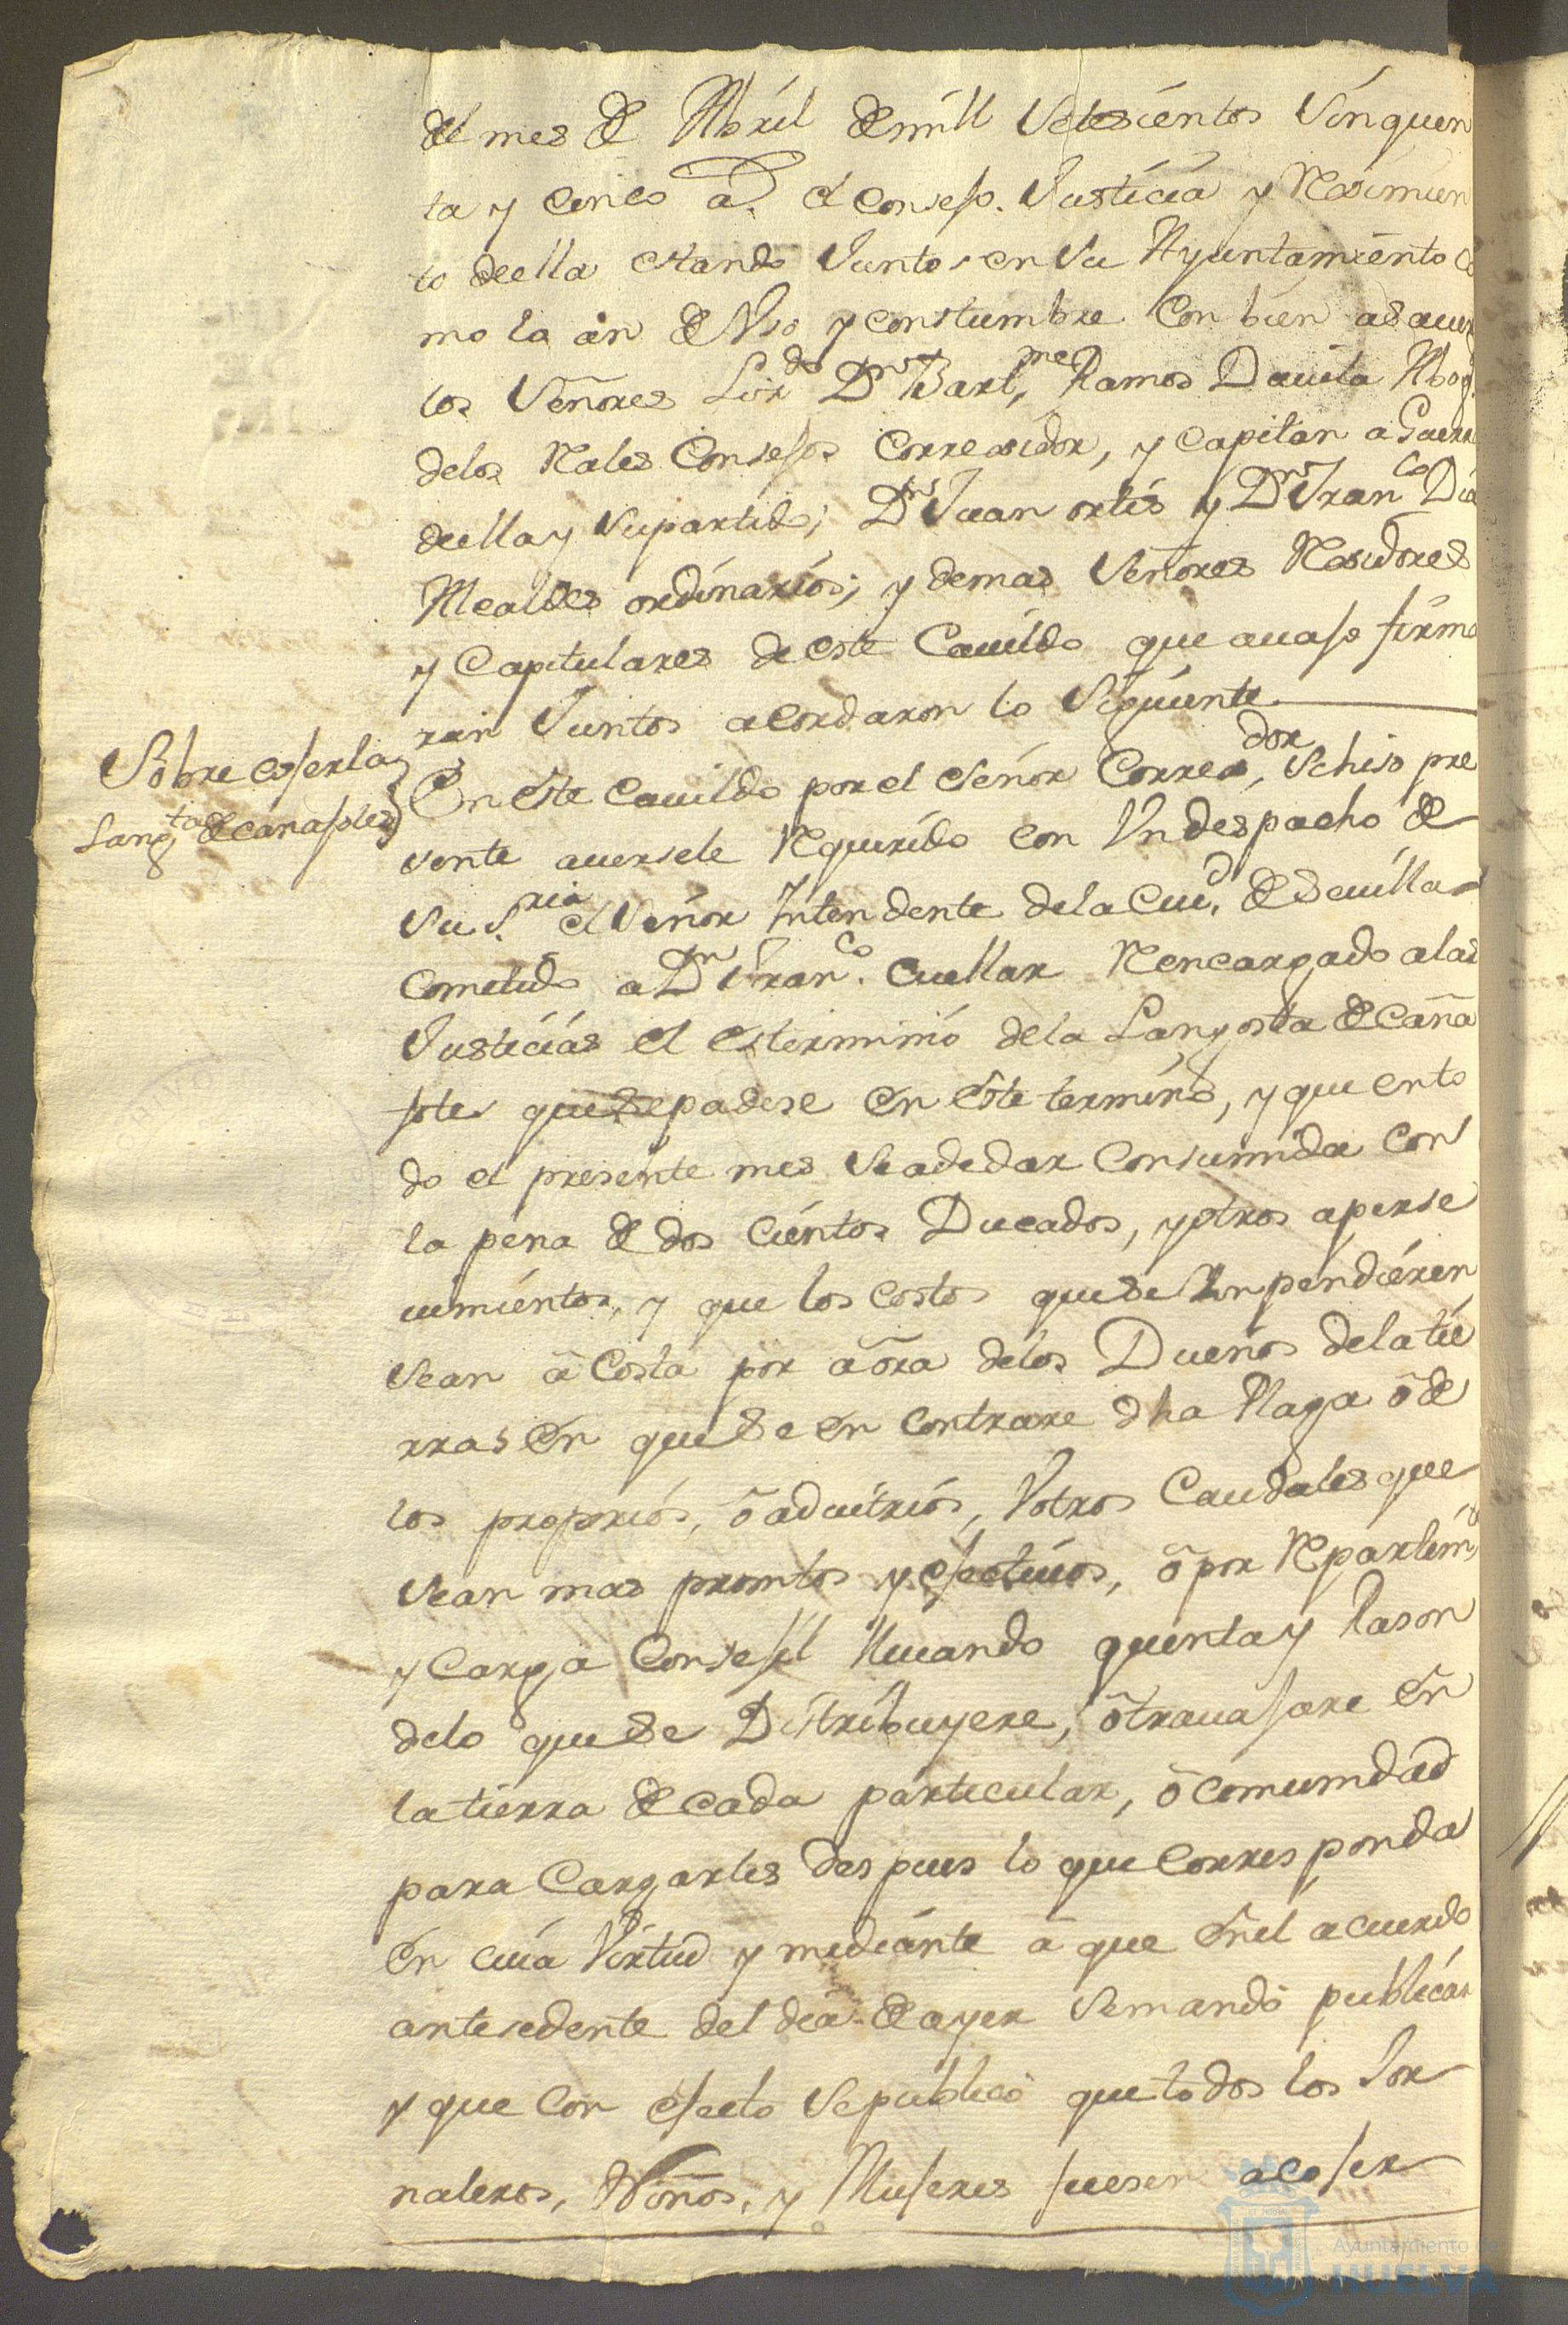 del mes de Abril de mill Setesientos Sinquen
ta y cinco a.s el Consejo. Justicia y Reximien
to deella estando Juntos en su Ayuntamiento Co
mo la an de Vso y constumbre Conbien asauer
los Señores Lizdo Dn Bartme Ramos Dauila Abog.
delos Rales Consejos Correxidor, y Capitan a Guerra
deella y supartido; Dn Juan ortis y Dn Franco Dia
Alcaldes ordinarios; y demas Señores Rexidores
y Capitulares de este Cauildo que auajo firma
ran Juntos acordaron lo Siguiente
Sobre cojer la
Langta de canajotes
En este cauildo por el señor Corredor, se hiso pre
sente auersele Requerido con Vn despacho de
su S.ria el señor Intendente dela Ciud. de Seuilla
Cometido a Dn Franco. Cuellar Rencargado alas
Justicias el esterminio dela Langosta de Caña
jotes que se padese en este termino, y que en to
do el presente mes se adedar Consumida Con
la pena de dos Cientos Ducados, y otros aperse
uimientos, y que los costos que se Ynpendieren
sean a Costa por aora delos Dueños dela tie
rras en que se en contrare dha Plaga o de
los proprios, o aduitrios, Votros Caudales que
sean mas promtos y efectiuos, o por Repartimto
y Carga Consejil lleuando quenta y Rason
delo que se Distribuyere, o trauajare en
la tierra de cada particular, o comunidad
para Cargarles despues lo que Corresponda
en cuia Virtud y mediante a que en el acuerdo
antesedente del dia de ayer se mando publicar
y que con efecto se publico que todos los Jor
naleros, Niños, y Mujeres fuesen a cojer
Ayuntamiento de
HUELVA